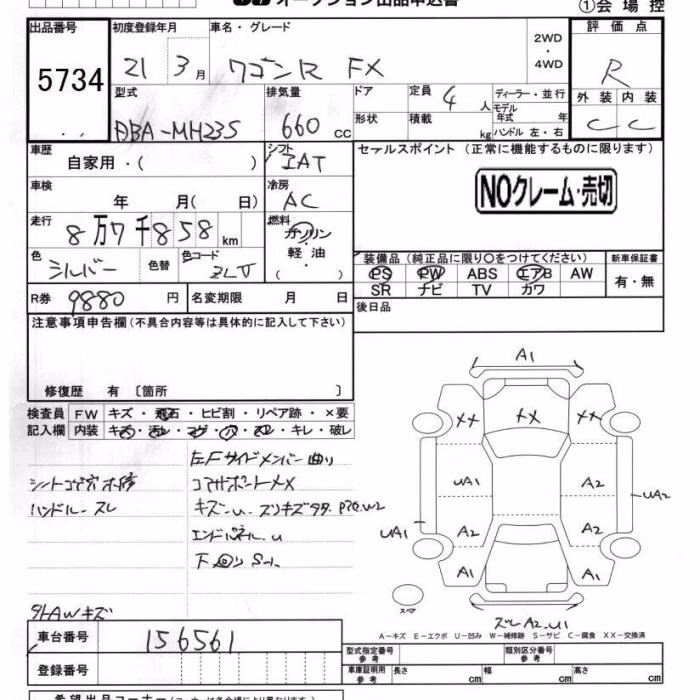 ①会場控
出品番号 初度登録年月 車名・グレード 2WD・4WD 評価点
5734 21 3月 ワゴンR FX R
型式 排気量 ドア 定員 4人 ディーラー・並行 外装 内装
DBA-MH23S 660cc 形状 積載 kg モデル年式 年 ハンドル 左・右 C C
車歴 自家用・( ) シフト IAT セールスポイント (正常に機能するものに限ります)
車検 年 月( 日) 冷房 AC NOクレーム・売切
走行 8万7千858km 燃料 ガソリン・軽油・( )
色 シルバー 色替 色コード 装備品 (純正品に限り○をつけてください) 新車保証書
PS PW ABS エアB AW 有・無
SR ナビ TV カワ
R券 9880円 名変期限 月 日 後日品
注意事項申告欄(不具合内容等は具体的に記入して下さい)
修復歴 有 〔箇所 〕
検査員 FW キズ・飛石・ヒビ割・リペア跡・×要
記入欄 内装 キズ・汚レ・コゲ・穴・スレ・キレ・破レ
左Fサイドメンバー曲り
シートコゲ穴 補修 コアサポートXX
ハンドル-スレ キズ-u.
エンドパネル.u
外AWキズ
A1
XX XX XX
UA1 A2 UA2
UA1 A2 A2
A1 A1
スペア
スレA2-U1
A-キズ E-エクボ U-凹み W-補修跡 S-サビ C-腐食 XX-交換済
車台番号 156561
型式指定番号 参考 類別区分番号 参考
登録番号 車庫証明用 参考 長さ cm 幅 cm 高さ cm